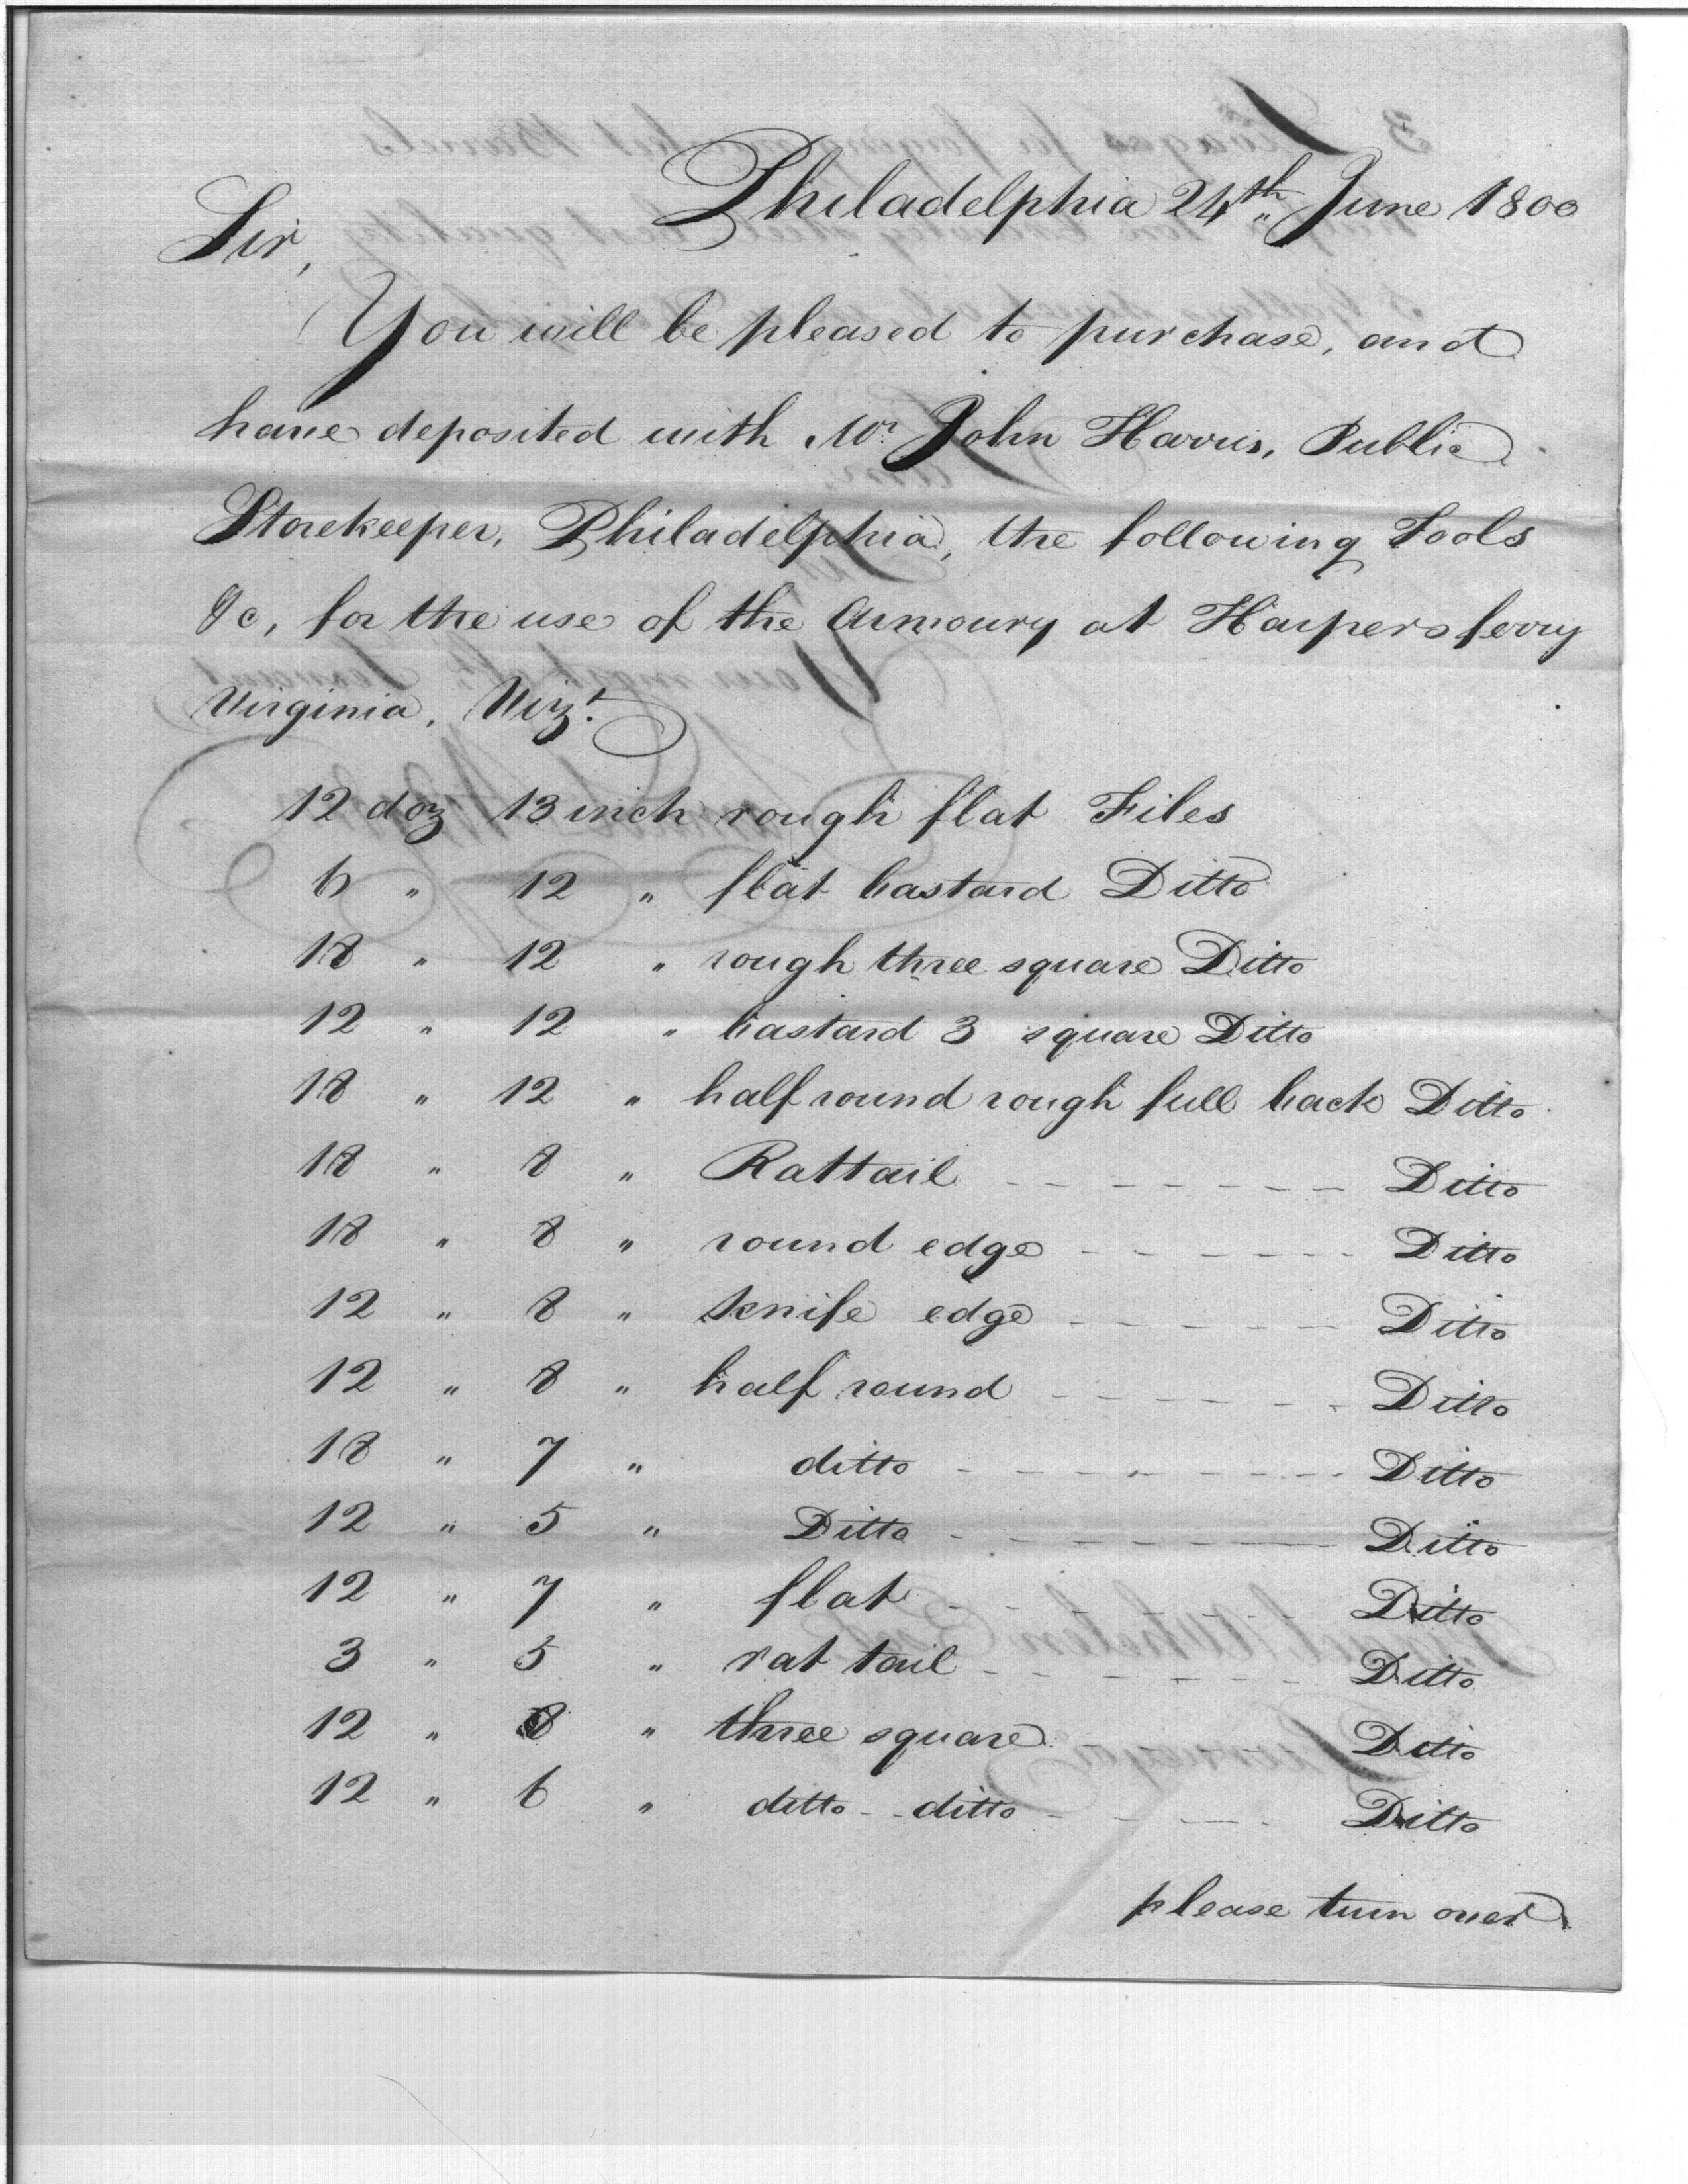 Philadelphia 24th June 1800
Sir,
You will be pleased to purchase, and
have deposited with Mr John Harris, Public
Storekeeper, Philadelphia, the following Tools
&c, for the use of the Armoury at Harpersferry
Virginia, Vizt.
12 doz 13 inch rough flat Files
6 " 12 " flat bastard Ditto
18 " 12 " rough three square Ditto
12 " 12 " bastard 3 square Ditto
18 " 12 " half round rough full back Ditto
18 " 8 " Rattail Ditto
18 " 8 " round edge Ditto
12 " 8 " knife edge Ditto
12 " 8 " half round Ditto
18 " 7 " ditto Ditto
12 " 5 " Ditto Ditto
12 " 7 " flat Ditto
3 " 5 " rat tail Ditto
12 " 8 " three square Ditto
12 " 6 " ditto ditto Ditto
please turn over